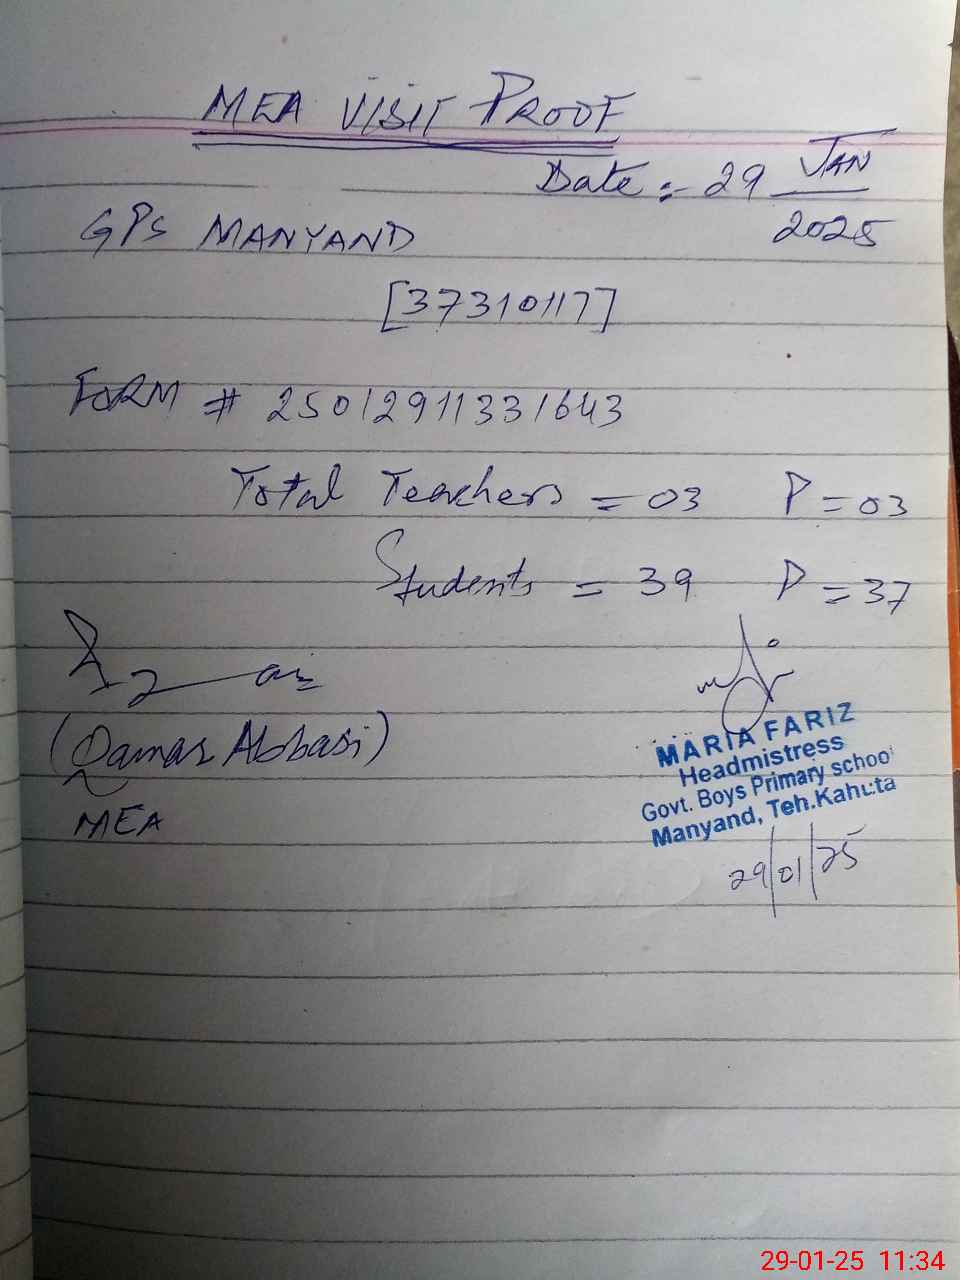 MEA VISIT PROOF
Date :- 29 JAN
2025
GPS MANYAND
[37310117]
FORM # 25012911331643
Total Teachers = 03 P = 03
Students = 39 P = 37
(Qamar Abbasi)
MEA
MARIA FARIZ
Headmistress
Govt. Boys Primary school
Manyand, Teh.Kahuta
29/01/25
29-01-25 11:34